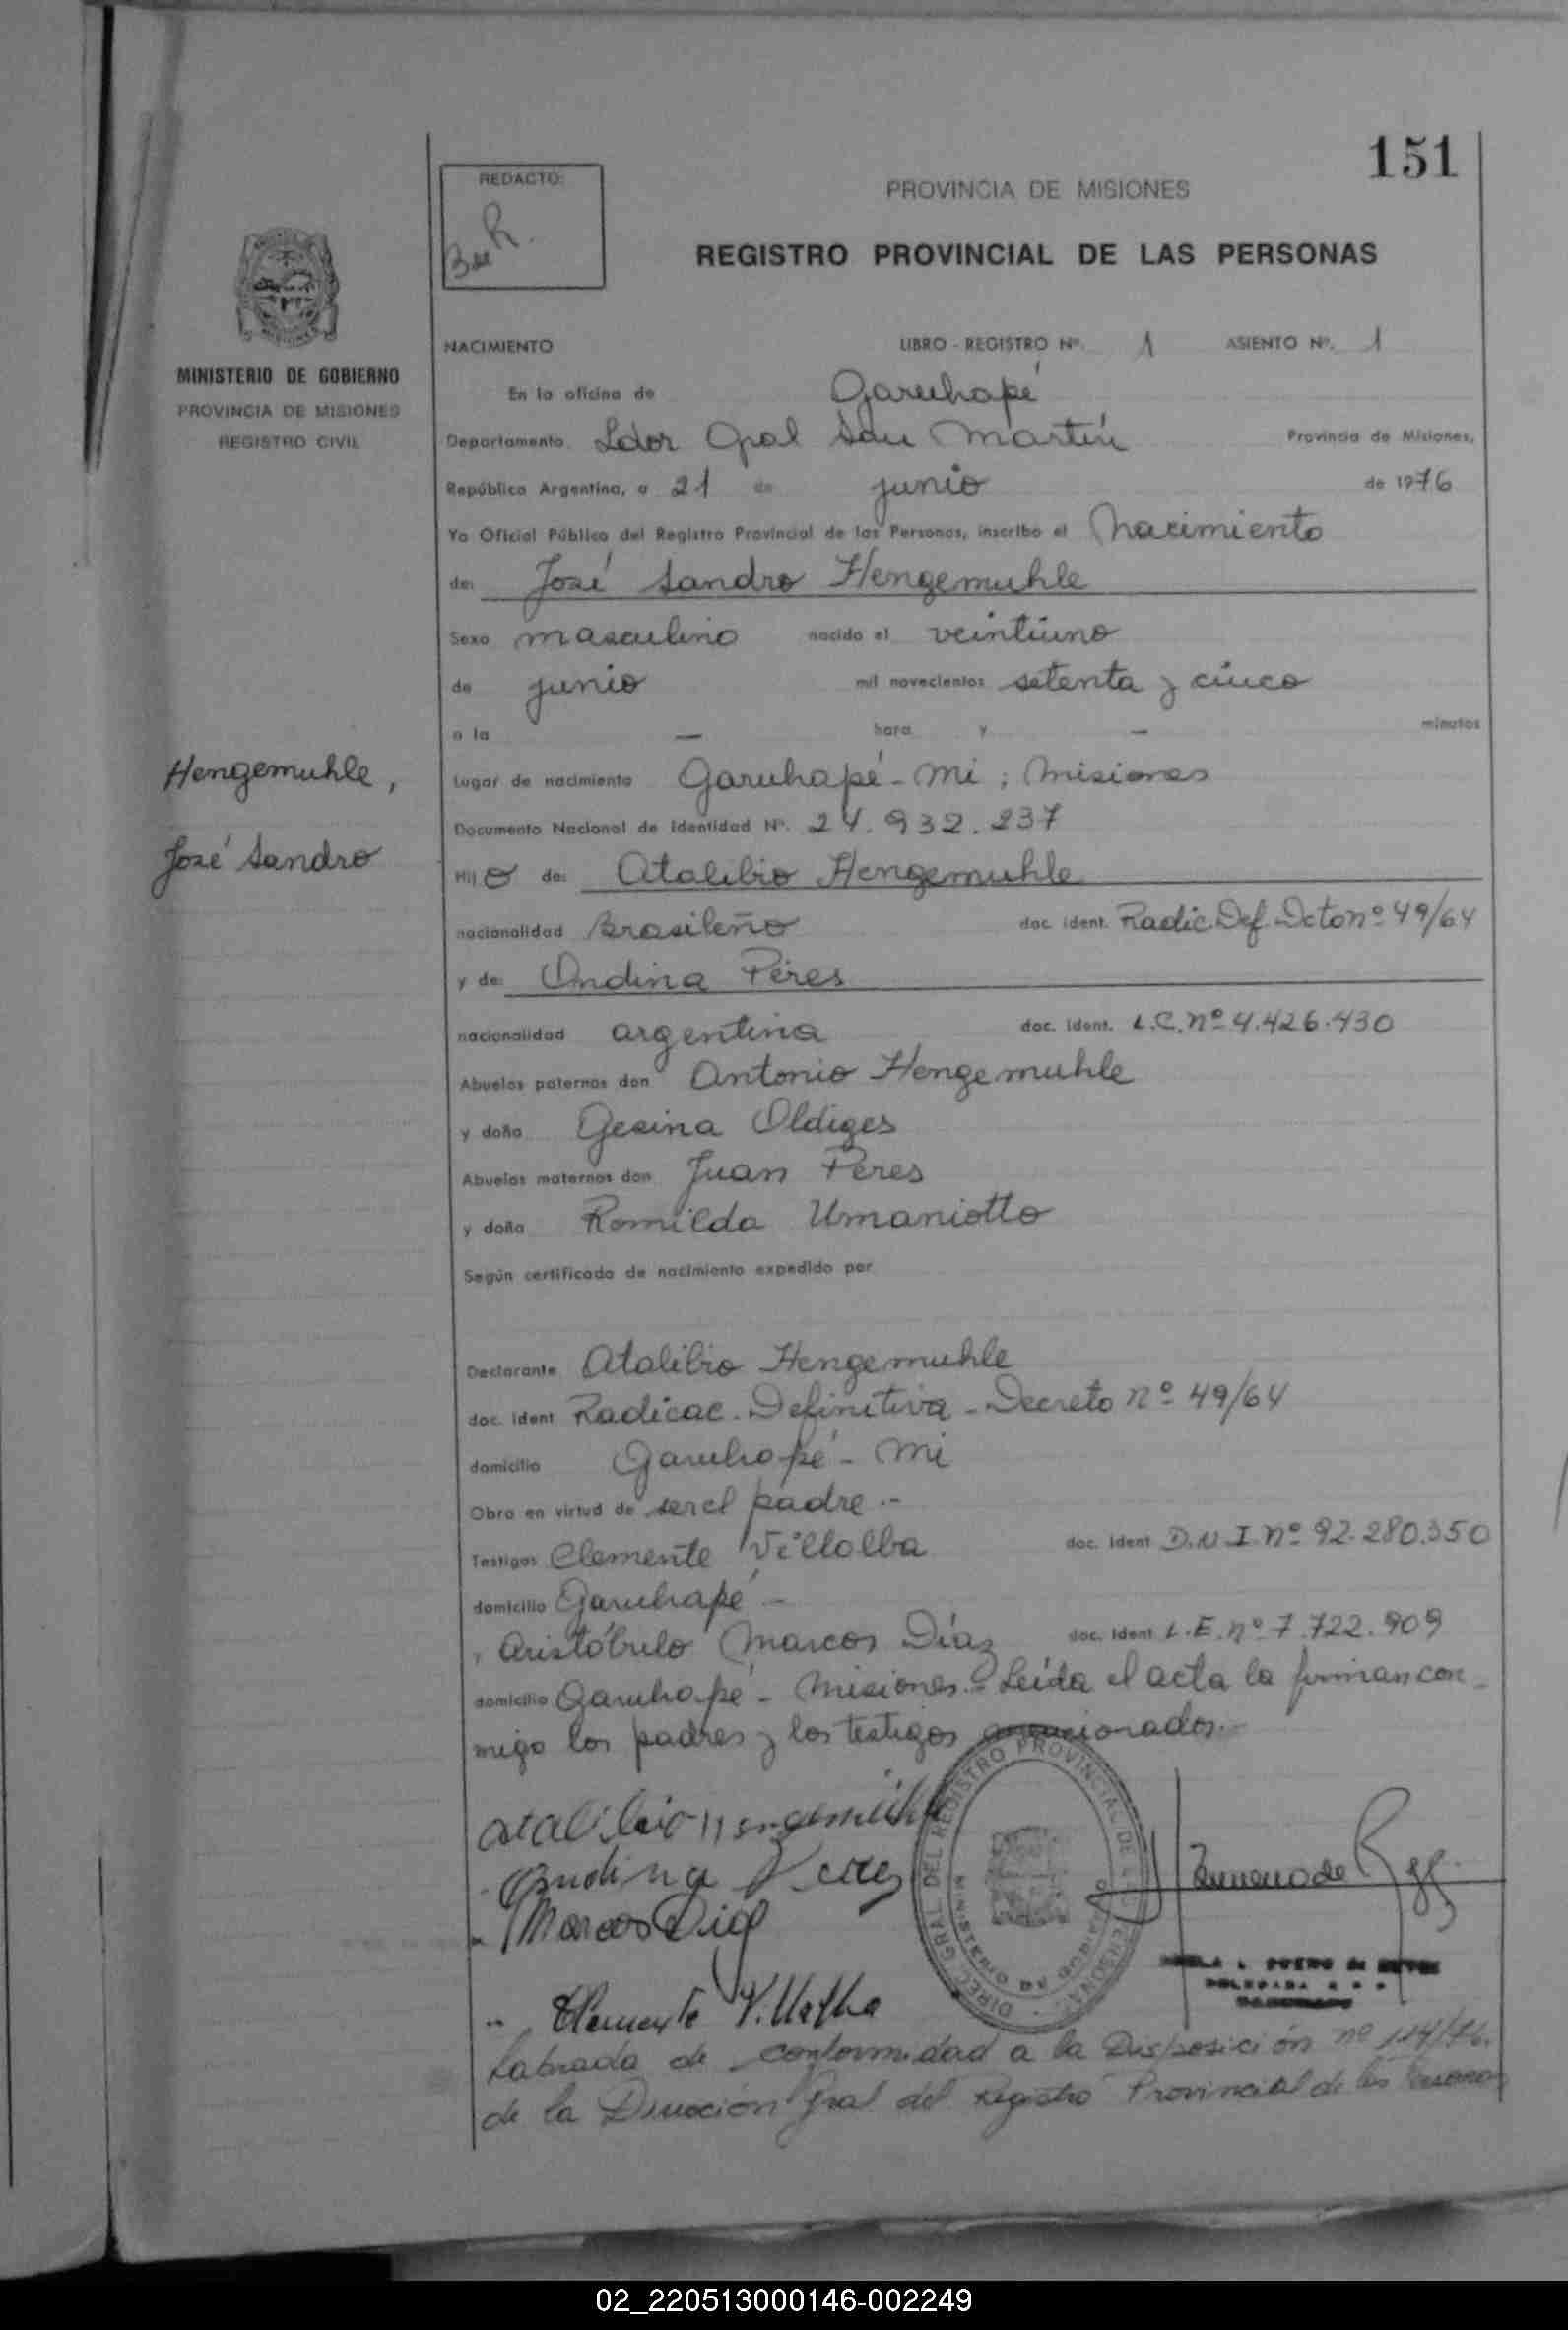 151
REDACTO:
R.
PROVINCIA DE MISIONES
REGISTRO PROVINCIAL DE LAS PERSONAS
MINISTERIO DE GOBIERNO
PROVINCIA DE MISIONES
REGISTRO CIVIL
NACIMIENTO LIBRO - REGISTRO Nº. 1 ASIENTO Nº. 1
En la oficina de Garuhapé
Departamento Ldor Gral San Martín Provincia de Misiones,
República Argentina, a 21 de junio de 1976
Yo Oficial Público del Registro Provincial de las Personas, inscribo el Nacimiento
de: José Sandro Hengemuhle
Sexo masculino nacido el veintiuno
de junio mil novecientos setenta y cinco
a la — hora y — minutos
Hengemuhle,
José Sandro
Lugar de nacimiento Garuhapé - Mi; Misiones
Documento Nacional de Identidad Nº. 24.932.237
Hij o de: Atalibio Hengemuhle
nacionalidad Brasileño doc. ident. Radic. Def. Dcto nº 49/64
y de: Ondina Péres
nacionalidad argentina doc. ident. L.C. nº 4.426.430
Abuelos paternos don Antonio Hengemuhle
y doña Gesina Oldiges
Abuelos maternos don Juan Péres
y doña Romilda Umaniotto
Según certificado de nacimiento expedido por
Declarante Atalibio Hengemuhle
doc. ident Radicac. Definitiva - Decreto nº 49/64
domicilio Garuhapé - Mi
Obra en virtud de ser el padre.-
Testigos Clemente Villalba doc. ident D.N.I. nº 92.280.350
domicilio Garuhapé -
y Aristóbulo Marcos Díaz doc. ident L.E. nº 7.722.909
domicilio Garuhapé - Misiones.- Leída el acta la firman con-
migo los padres y los testigos mencionados.-
Atalibio Hengemuhle
Ondina Peres
Marcos Diaz
Clemente Villalba
DIREC. GRAL. DEL REGISTRO PROVINCIAL DE LAS PERSONAS
MINISTERIO DE GOBIERNO
Labrada de conformidad a la Disposición nº 114/76.
de la Dirección Gral del Registro Provincial de las Personas
02_220513000146-002249